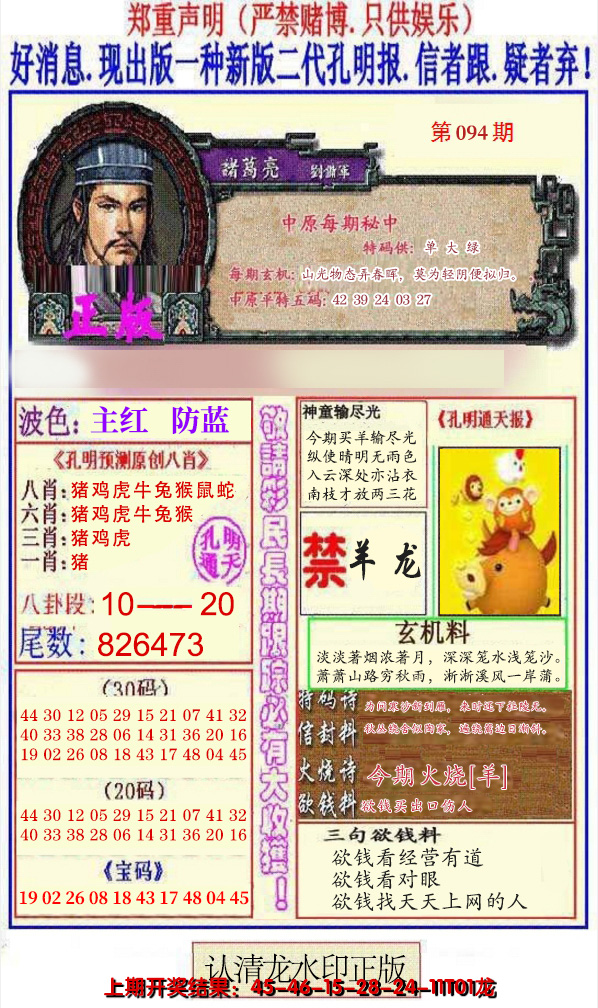 郑重声明（严禁赌博.只供娱乐）
好消息.现出版一种新版二代孔明报.信者跟.疑者弃！
第094期
諸葛亮 劉備軍
中原每期秘中
特码供：单大绿
每期玄机：山光物态弄春晖，莫为轻阴便拟归。
中原平特五码：42 39 24 03 27
正版
波色：主红 防蓝
《孔明预测原创八肖》
八肖：猪鸡虎牛兔猴鼠蛇
六肖：猪鸡虎牛兔猴
三肖：猪鸡虎
一肖：猪
孔明
通天
八卦段：10——20
尾数：826473
（30码）
44 30 12 05 29 15 21 07 41 32
40 33 38 28 06 14 31 36 20 16
19 02 26 08 18 43 17 48 04 45
（20码）
44 30 12 05 29 15 21 07 41 32
40 33 38 28 06 14 31 36 20 16
《宝码》
19 02 26 08 18 43 17 48 04 45
敬請彩民長期跟踪必有大收獲！
神童输尽光
今期买羊输尽光
纵使晴明无雨色
入云深处亦沾衣
南枝才放两三花
《孔明通天报》
禁羊龙
玄机料
淡淡著烟浓著月，深深笼水浅笼沙。
萧萧山路穷秋雨，淅淅溪风一岸蒲。
特码诗 为问寒沙新到雁，来时还下杜陵无。
信封料 秋丛绕舍似陶家，遍绕篱边日渐斜。
火烧诗 今期火烧[羊]
欲钱料 欲钱买出口伤人
三句欲钱料
欲钱看经营有道
欲钱看对眼
欲钱找天天上网的人
认清龙水印正版
上期开奖结果：45-46-15-28-24-11T01龙